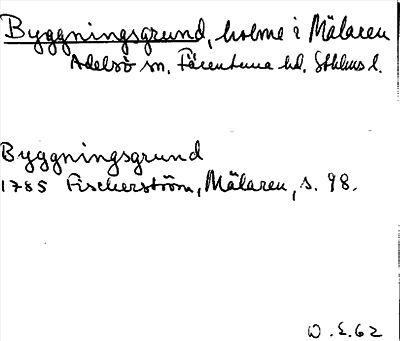 Byggningsgrund, holme i Mälaren
Adelsö sn, Färentuna hd, Sthlms l.
Byggningsgrund
1785 Fischerström, Mälaren, s. 98.
W.E.62